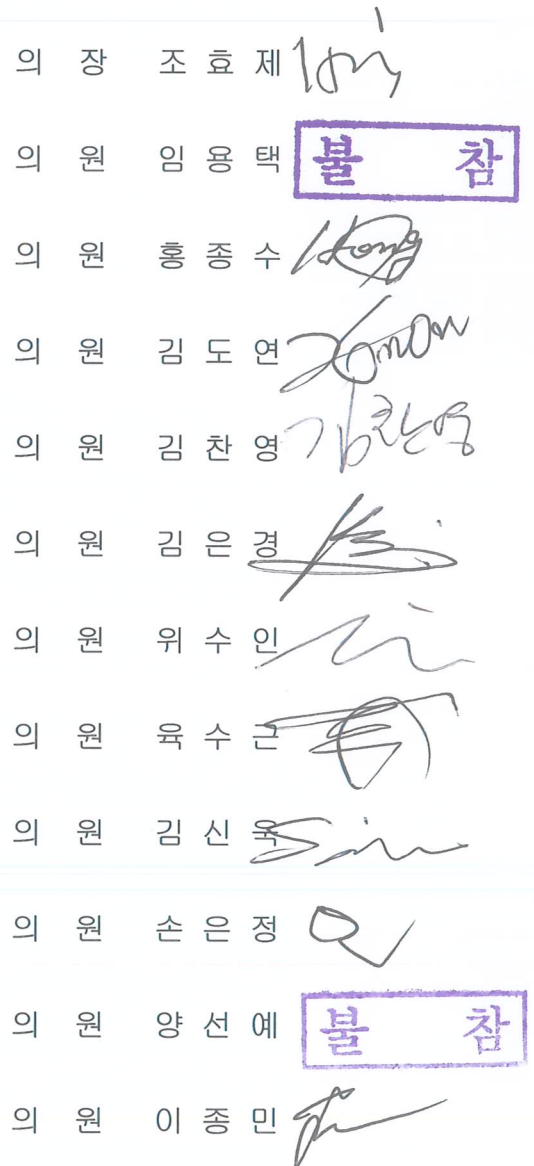 의 장 조 효 제
의 원 임 용 택 불 참
의 원 홍 종 수
의 원 김 도 연
의 원 김 찬 영 김찬영
의 원 김 은 경
의 원 위 수 인
의 원 육 수 근
의 원 김 신 욱
의 원 손 은 정
의 원 양 선 예 불 참
의 원 이 종 민